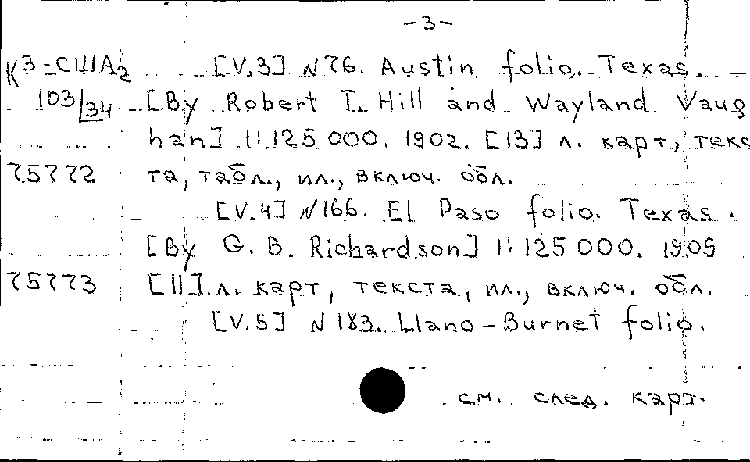 -3-
К3-США2 [V.3] N76. Austin folio. Texas.
103/34 [By Robert T. Hill and Wayland Vaug
han] 1:125 000. 1902. [13] л. карт, текс
75772 та, табл., ил., включ. обл.
[V.4] N166. El Paso folio. Texas.
[By G. B. Richardson] 1:125 000. 1909
75773 [11] л. карт, текста, ил., включ. обл.
[V.5] N183. Llano-Burnet folio.
см. след. карт.